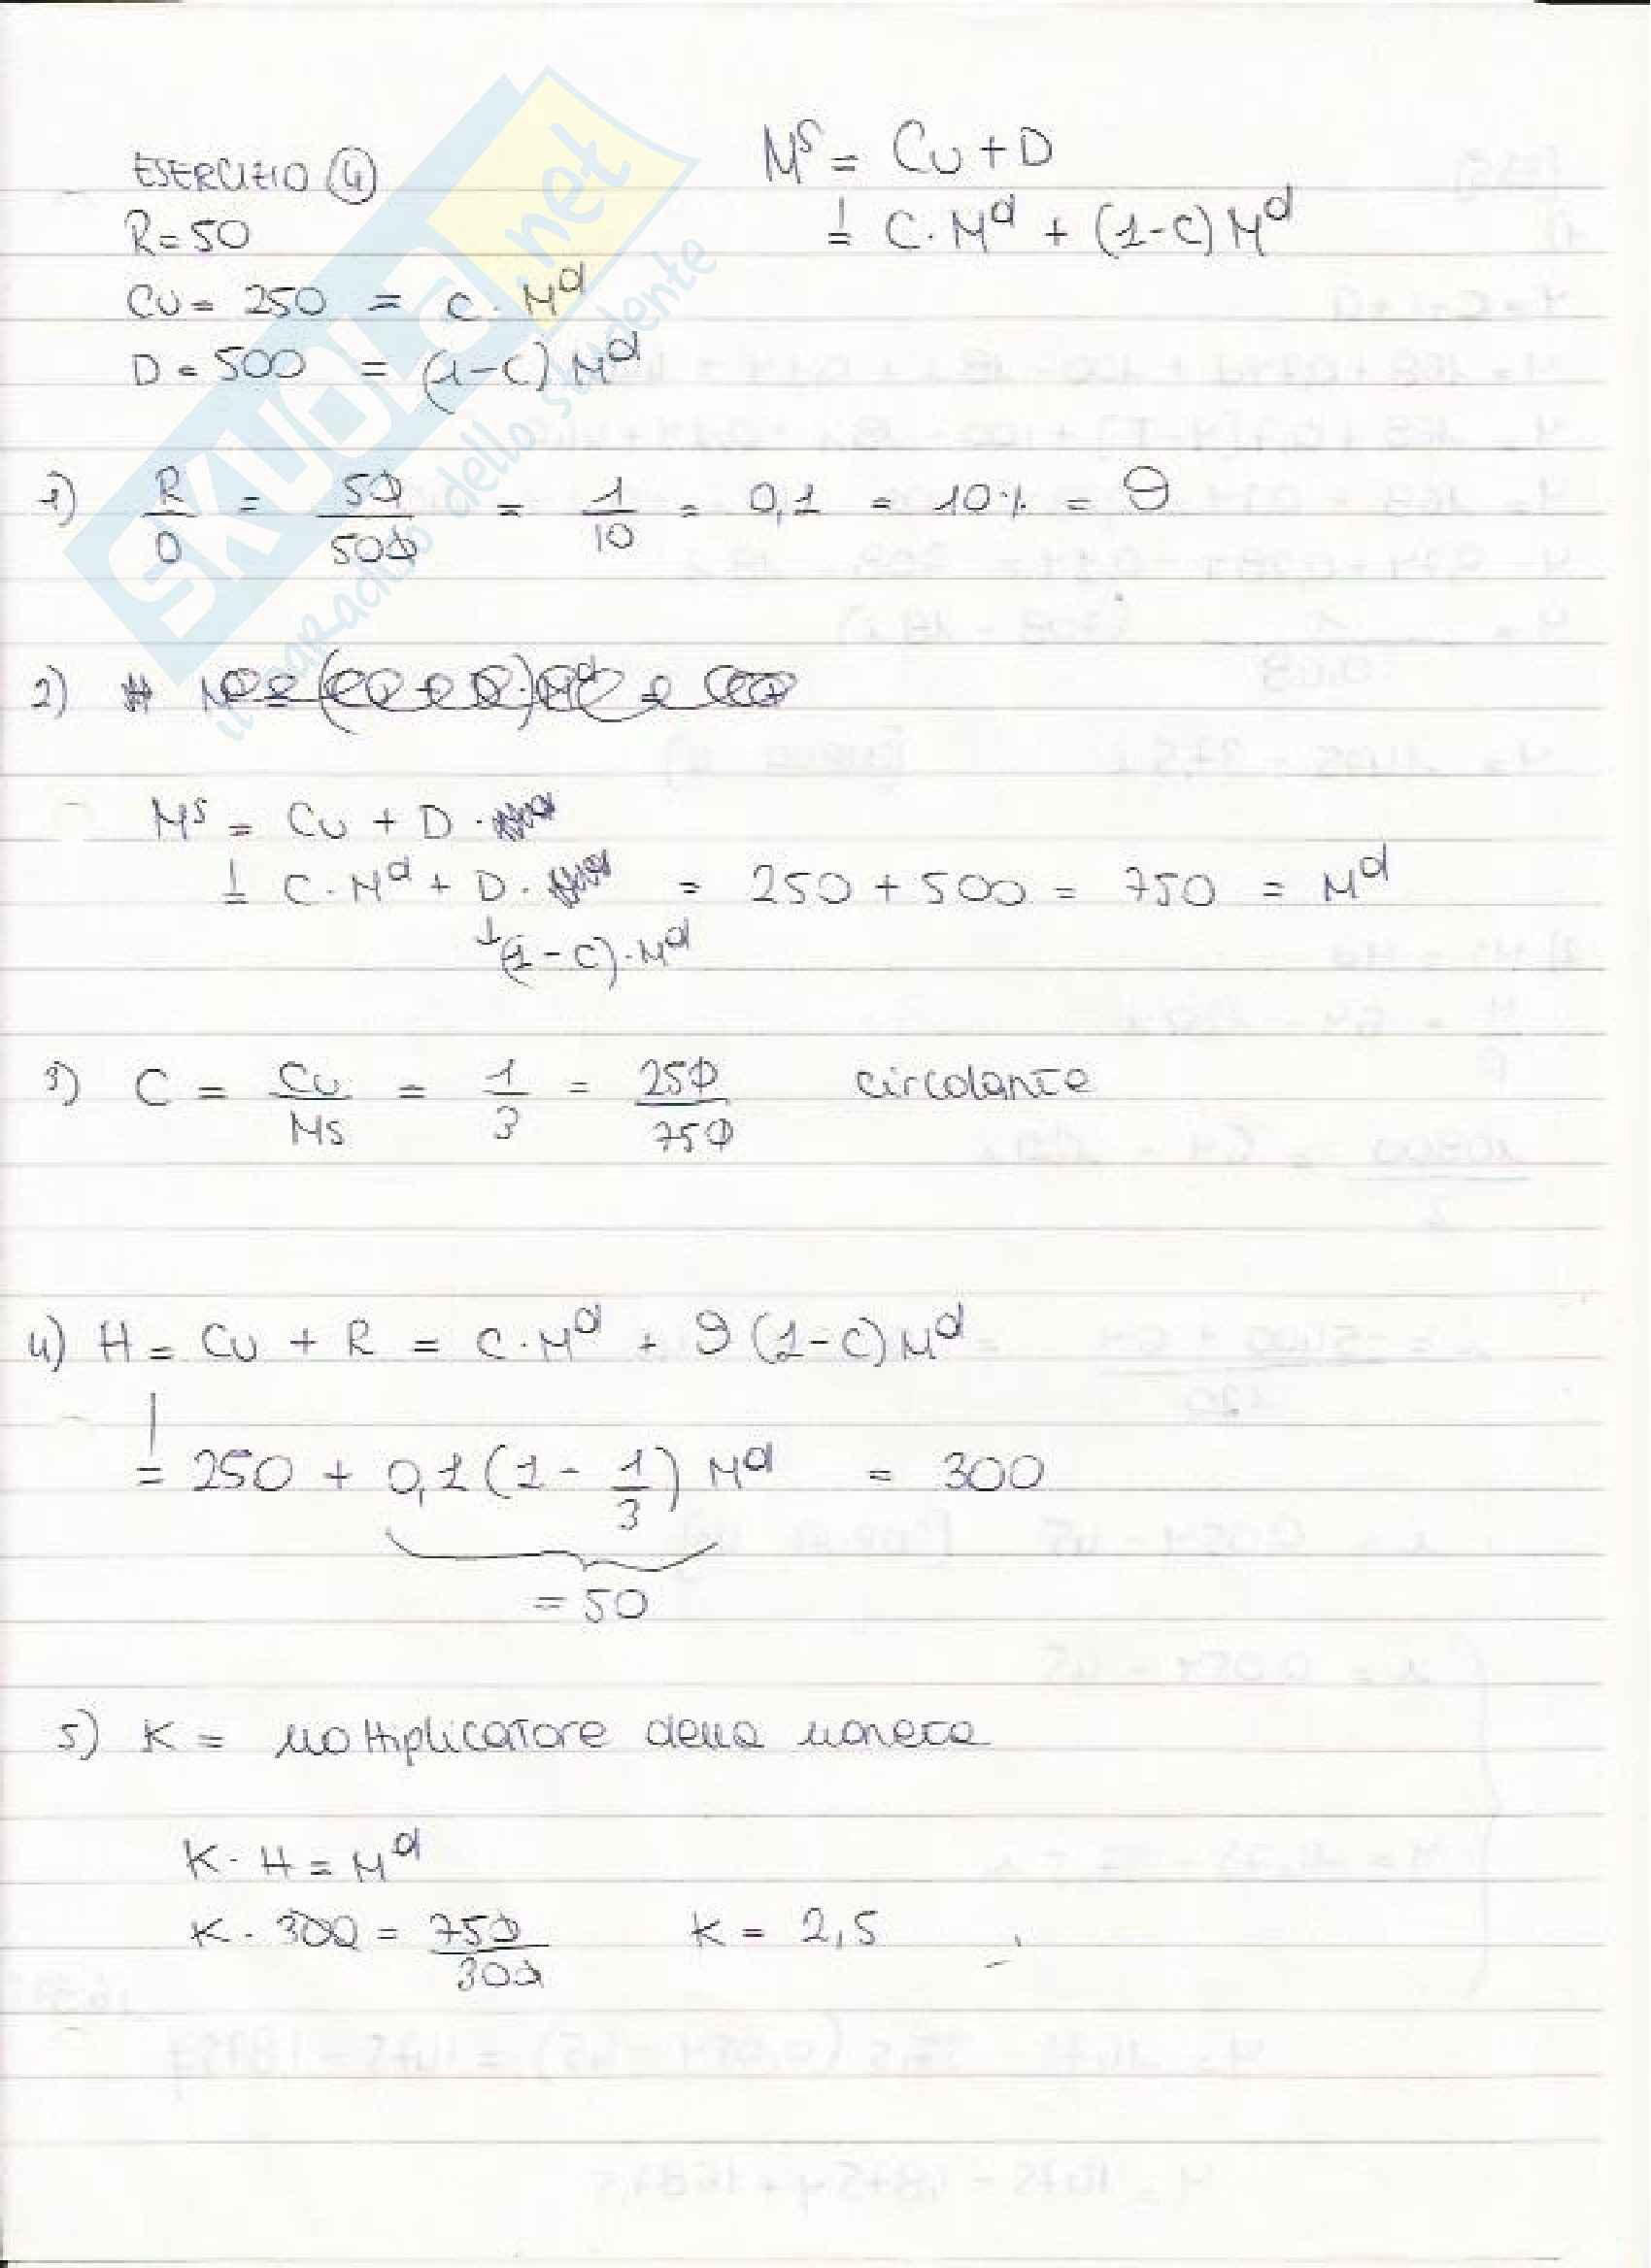 ESERCIZIO 4
R = 50
Cu = 250 = c · Mᵈ
D = 500 = (1-c) Mᵈ
Mˢ = Cu + D
= C · Mᵈ + (1-C) Mᵈ
SKUOLA.net
il paradiso dello studente
1) R/D = 50/500 = 1/10 = 0,1 = 10% = ϑ
2)
Mˢ = Cu + D ·
= C · Mᵈ + D · = 250 + 500 = 750 = Mᵈ
(1-C) · Mᵈ
3) C = Cu/Ms = 1/3 = 250/750 circolante
4) H = Cu + R = C · Mᵈ + ϑ (1-C) Mᵈ
= 250 + 0,1 (1 - 1/3) Mᵈ = 300
= 50
5) K = moltiplicatore della moneta
K · H = Mᵈ
K · 300 = 750/300 K = 2,5